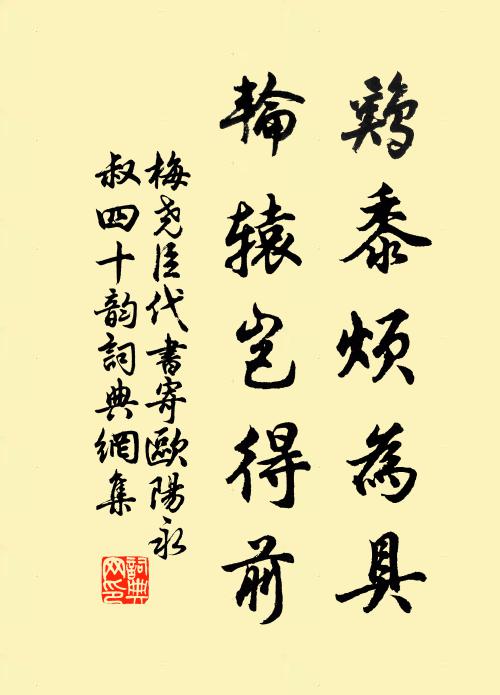 鷄黍煩為具
輪辕豈得前
梅尧臣代書寄歐陽永
叔四十韵詞典網集
詞典網印